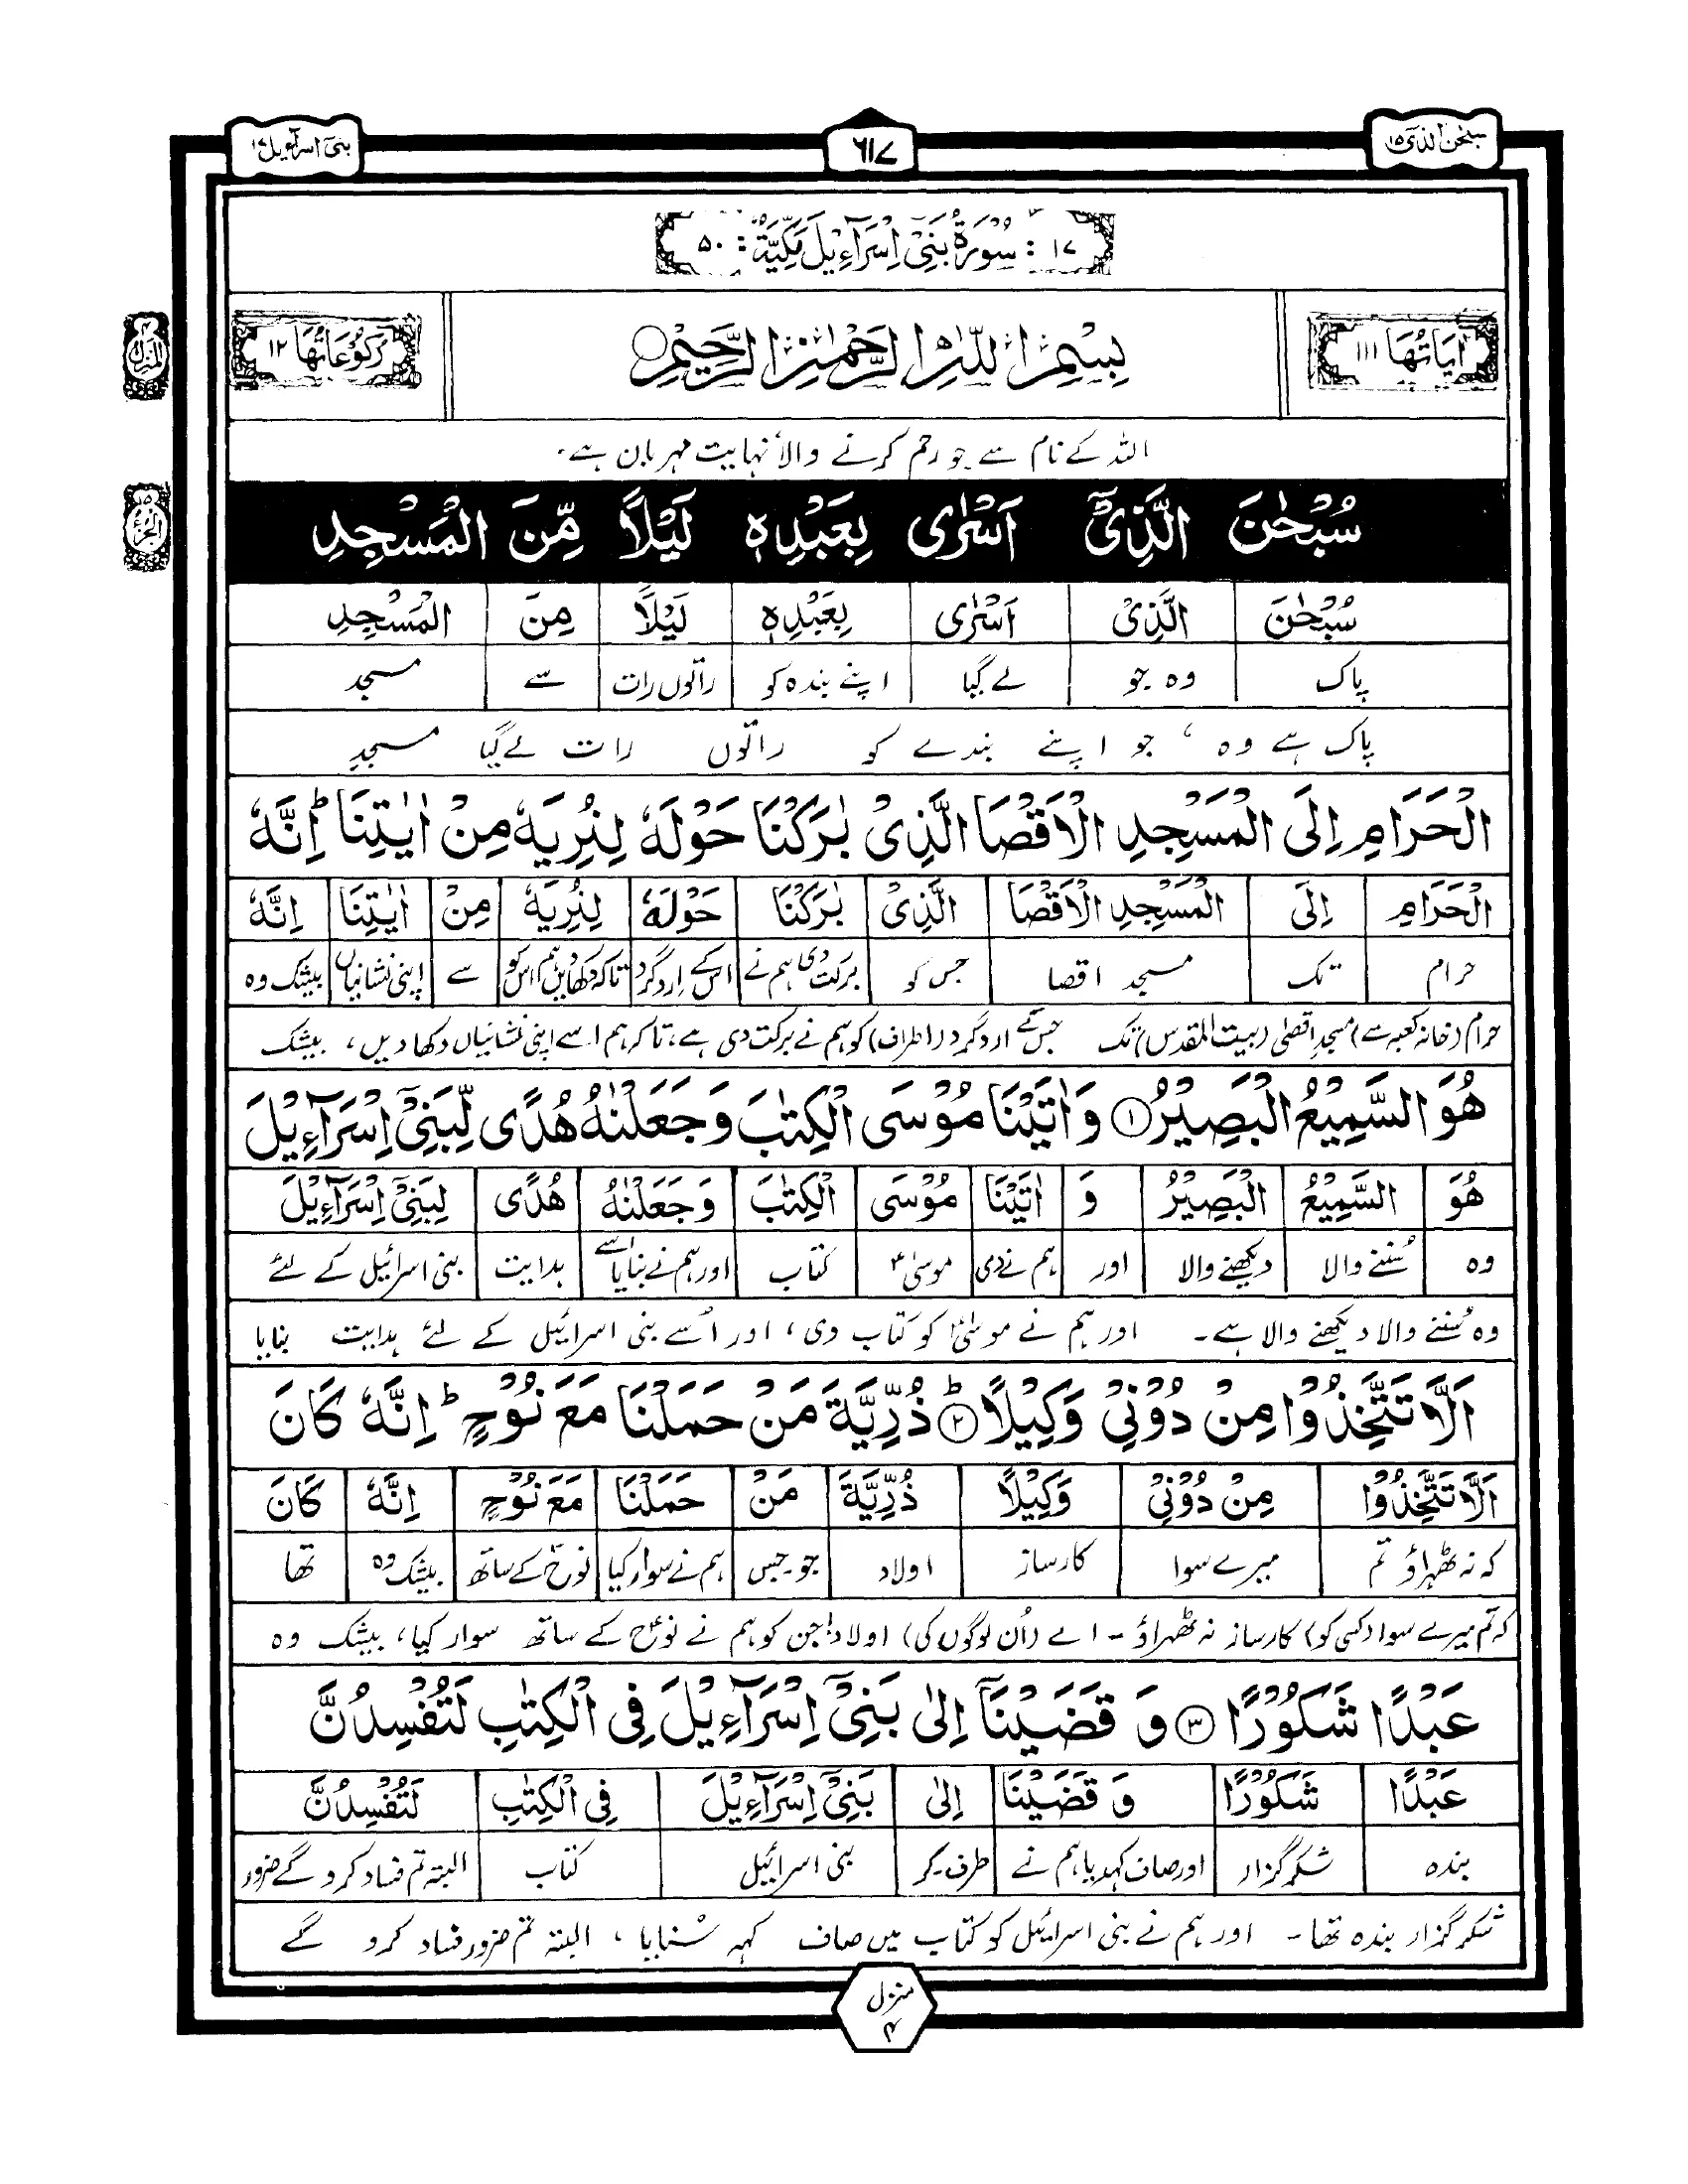 سبحٰن الذی ۱۵
۶۱۷
بنیٓ اسرآءیل ۱۷
۱۷ : سُوْرَةُ بَنِیْٓ اِسْرَآءِیْلَ مَكِّیَّةٌ : ۵۰
اٰیَاتُهَا ۱۱۱
بِسْمِ اللّٰهِ الرَّحْمٰنِ الرَّحِیْمِ
رُكُوْعَاتُهَا ۱۲
المنزل ۴
الجزء ۱۵
اللہ کے نام سے جو رحم کرنے والا نہایت مہربان ہے۔
سُبْحٰنَ الَّذِیْۤ اَسْرٰی بِعَبْدِهٖ لَیْلًا مِّنَ الْمَسْجِدِ
سُبْحٰنَ الَّذِیْ اَسْرٰی بِعَبْدِهٖ لَیْلًا مِنَ الْمَسْجِدِ
پاک وہ جو لے گیا اپنے بندہ کو راتوں رات سے مسجد
پاک ہے وہ ، جو اپنے بندے کو راتوں رات لے گیا مسجدِ
الْحَرَامِ اِلَی الْمَسْجِدِ الْاَقْصَا الَّذِیْ بٰرَكْنَا حَوْلَهٗ لِنُرِیَهٗ مِنْ اٰیٰتِنَا ؕ اِنَّهٗ
الْحَرَامِ اِلَی الْمَسْجِدِ الْاَقْصَا الَّذِیْ بٰرَكْنَا حَوْلَهٗ لِنُرِیَهٗ مِنْ اٰیٰتِنَا اِنَّهٗ
حرام تک مسجد اقصا جس کو برکت دی ہم نے اس کے ارد گرد تاکہ دکھا دیں ہم اس کو سے اپنی نشانیاں بیشک وہ
حرام (خانہ کعبہ سے) مسجدِ اقصیٰ (بیت المقدس) تک جس کے ارد گرد (اطراف) کو ہم نے برکت دی ہے، تاکہ ہم اسے اپنی نشانیاں دکھا دیں، بیشک
هُوَ السَّمِیْعُ الْبَصِیْرُ ۝۱ وَاٰتَیْنَا مُوْسَی الْكِتٰبَ وَجَعَلْنٰهُ هُدًی لِّبَنِیْۤ اِسْرَآءِیْلَ
هُوَ السَّمِیْعُ الْبَصِیْرُ وَ اٰتَیْنَا مُوْسَی الْكِتٰبَ وَجَعَلْنٰهُ هُدًی لِبَنِیْۤ اِسْرَآءِیْلَ
وہ سُننے والا دیکھنے والا اور ہم نے دی موسیٰؑ کتاب اور ہم نے بنایا اسے ہدایت بنی اسرائیل کے لئے
وہ سُننے والا دیکھنے والا ہے۔ اور ہم نے موسیٰؑ کو کتاب دی، اور اُسے بنی اسرائیل کے لئے ہدایت بنایا
اَلَّا تَتَّخِذُوْا مِنْ دُوْنِیْ وَكِیْلًا ؕ۝۲ ذُرِّیَّةَ مَنْ حَمَلْنَا مَعَ نُوْحٍ ؕ اِنَّهٗ كَانَ
اَلَّا تَتَّخِذُوْا مِنْ دُوْنِیْ وَكِیْلًا ذُرِّیَّةَ مَنْ حَمَلْنَا مَعَ نُوْحٍ اِنَّهٗ كَانَ
کہ نہ ٹھہراؤ تم میرے سوا کارساز اولاد جو۔جس ہم نے سوار کیا نوحؑ کے ساتھ بیشک وہ تھا
کہ تم میرے سوا (کسی کو) کارساز نہ ٹھہراؤ۔ اے (اُن لوگوں کی) اولاد! جن کو ہم نے نوحؑ کے ساتھ سوار کیا، بیشک وہ
عَبْدًا شَكُوْرًا ۝۳ وَ قَضَیْنَاۤ اِلٰی بَنِیْۤ اِسْرَآءِیْلَ فِی الْكِتٰبِ لَتُفْسِدُنَّ
عَبْدًا شَكُوْرًا وَ قَضَیْنَا اِلٰی بَنِیْۤ اِسْرَآءِیْلَ فِی الْكِتٰبِ لَتُفْسِدُنَّ
بندہ شکر گزار اور صاف کہدیا ہم نے طرف۔کر بنی اسرائیل کتاب البتہ تم فساد کرو گے ضرور
شکر گزار بندہ تھا۔ اور ہم نے بنی اسرائیل کو کتاب میں صاف کہہ سُنایا ، البتہ تم ضرور فساد کرو گے
منزل ۴